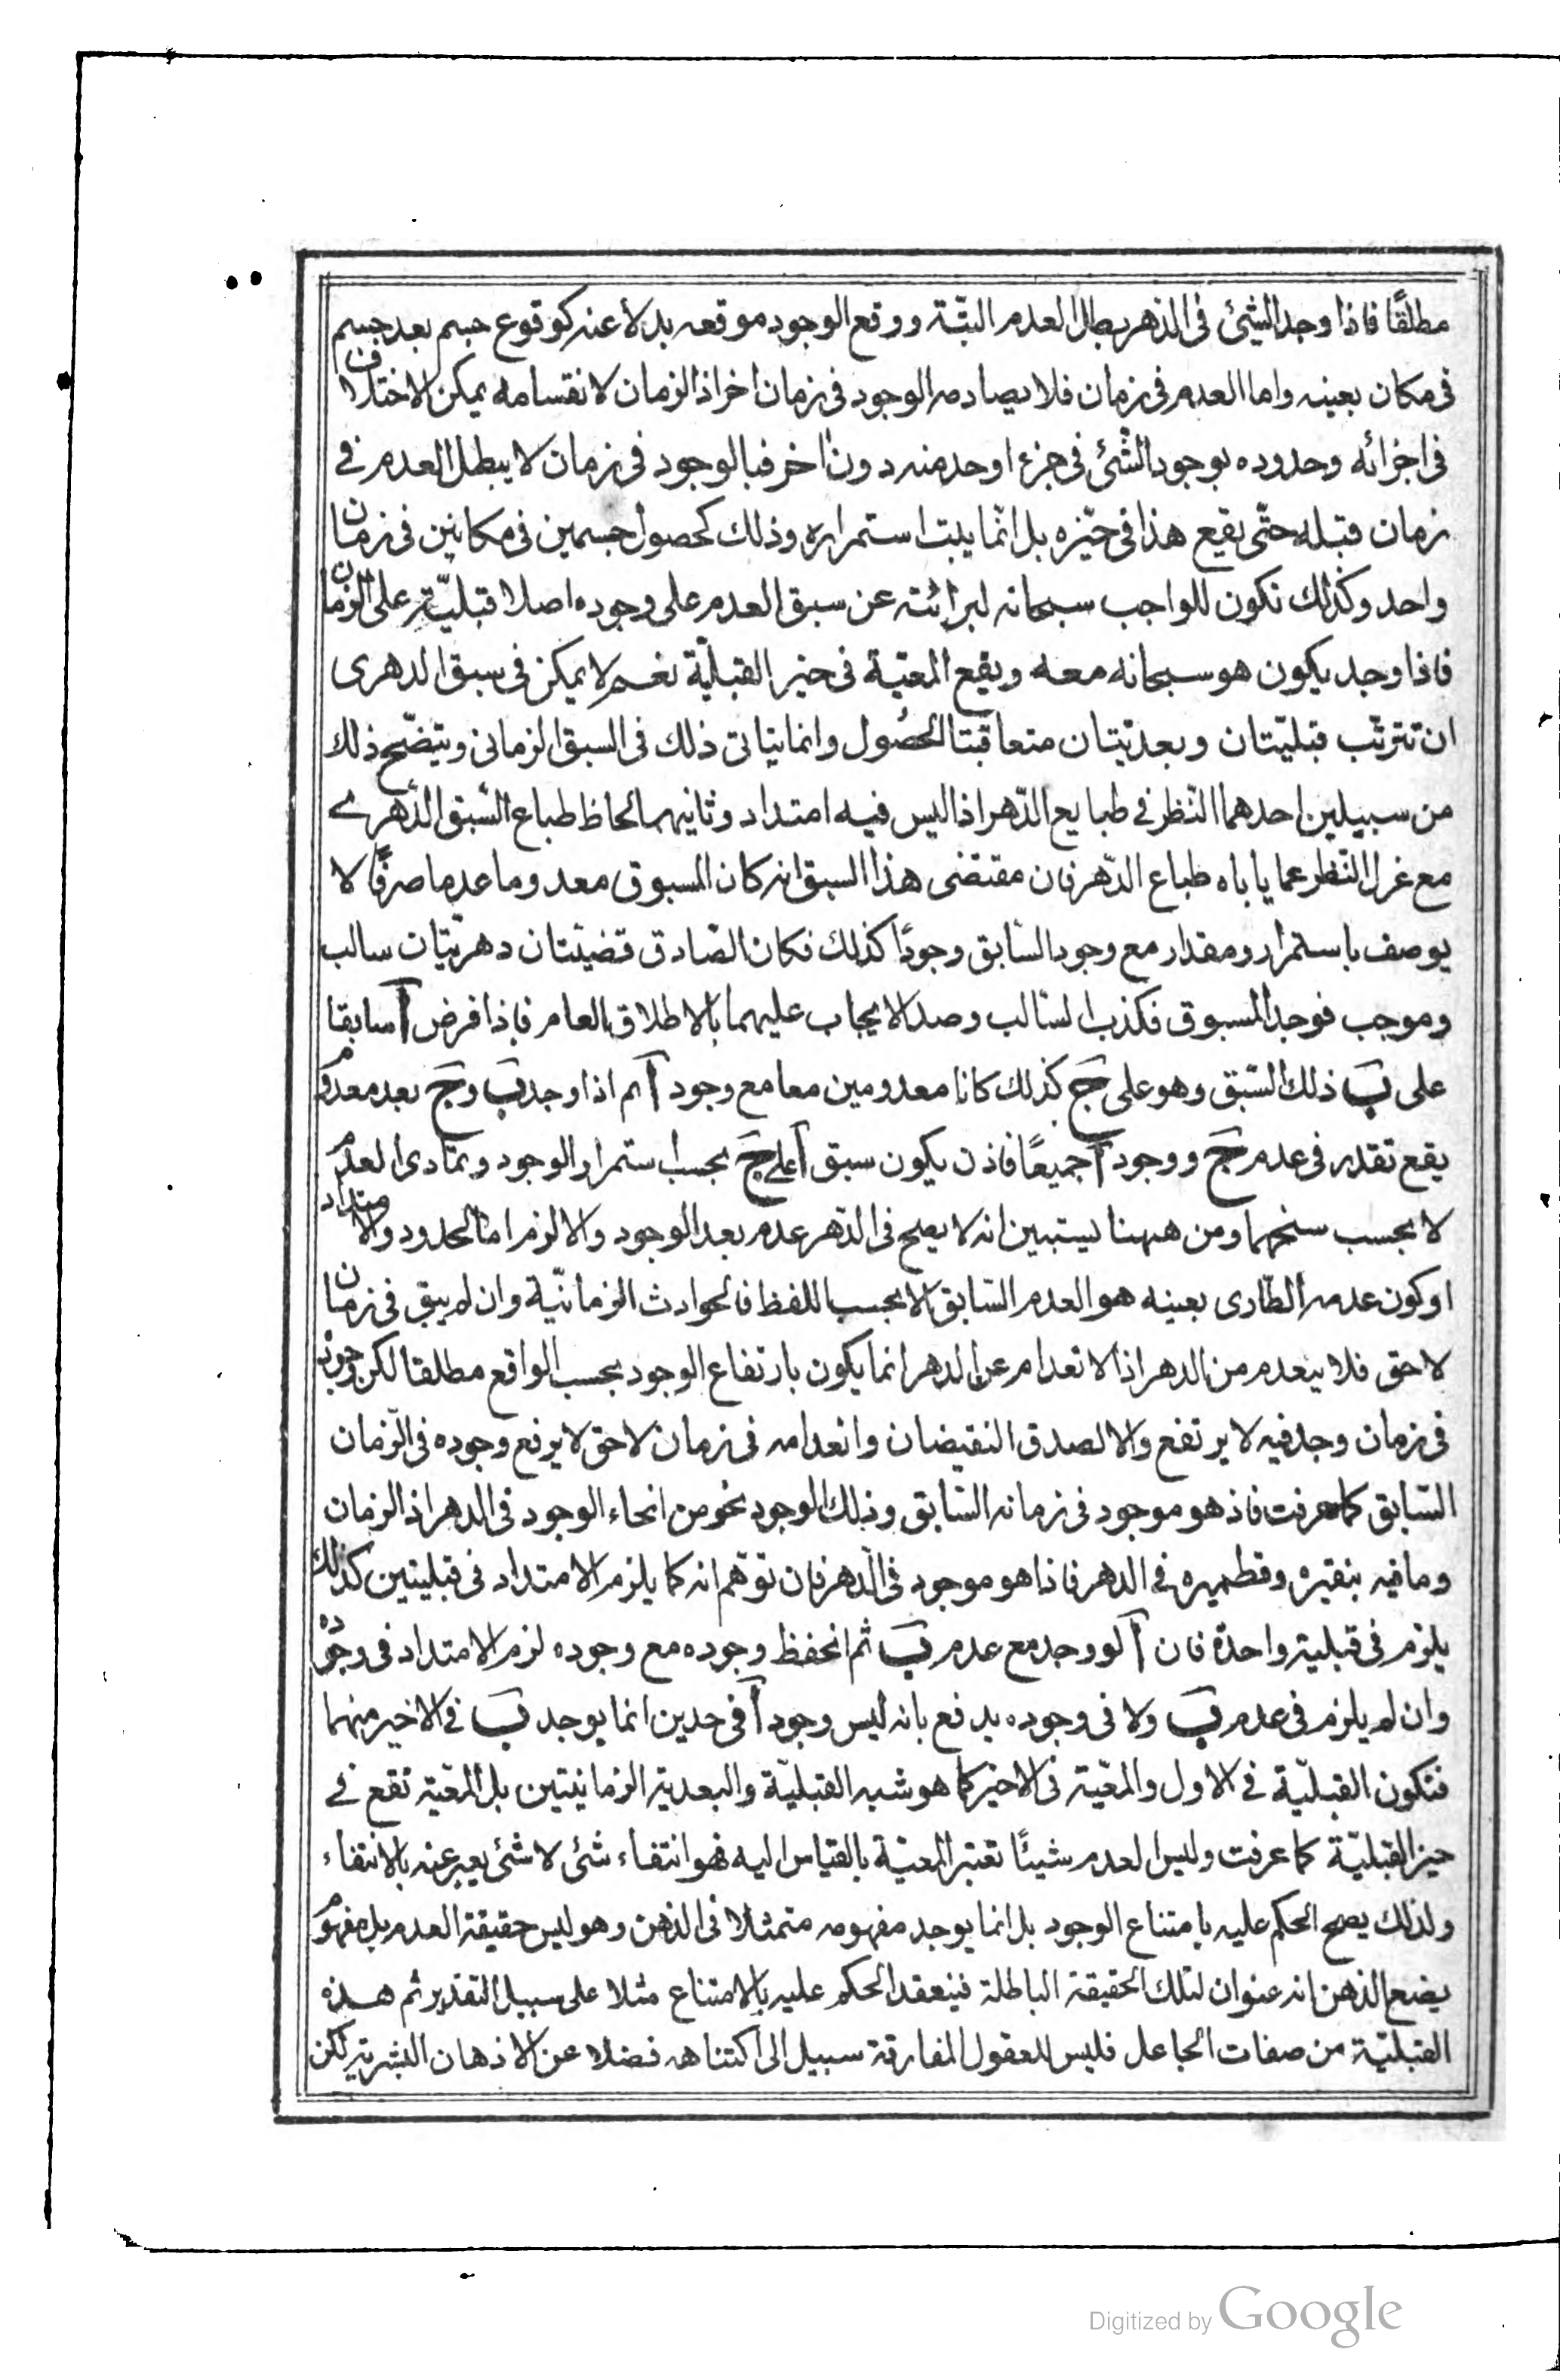 مطلقًا فاذا وجد الشئ فى الدهر بطل العدم البتّة ووقع الوجود موقعه بدلا عنه كوقوع جسم بعد جسم
فى مكان بعينه واما العدم فى زمان فلا يصادمه الوجود فى زمان اخر اذ الزمان لانقسامه يمكن الاختلاف
فى اجزائه وحدوده بوجود الشئ فى جزء او حد منه دون اخر فبالوجود فى زمان لا يبطل العدم فى
زمان قبله حتّى يقع هذا فى حيّزه بل انّما يبت استمراره وذلك كحصول جسمين فى مكانين فى زمان
واحد وكذلك تكون للواجب سبحانه لبرائته عن سبق العدم على وجوده اصلا قبليّة على الزمان
فاذا وجد يكون هو سبحانه معه ويقع المعيّة فى حيز القبليّة نعم لا يمكن فى سبق الدهرى
ان تترتّب قبليّتان وبعديّتان متعاقبتا الحصول وانما يتاتى ذلك فى السبق الزمانى ويتضّح ذلك
من سبيلين احدهما النّظر فى طبايع الدّهر اذ اليس فيه امتداد وثانيهما لحاظ طباع السّبق الدّهرى
مع غزل النّظر عما يأباه طباع الدّهر فان مقتضى هذا السبق انه كان المسبوق معدوما عدما صرفًا لا
يوصف باستمرار ومقدار مع وجود السّابق وجودًا كذلك فكان الصّادق قضيّتان دهريّتان سالب
وموجب فوجد المسبوق فكذب السّالب وصدالايجاب عليهما بالاطلاق العام فاذا فرض آ سابقا
على بَ ذلك السّبق وهو على جَ كذلك كانا معدومين معا مع وجود آ ثم اذا وجد بَ وجَ بعد معدوم
يقع تقدر فى عدم جَ ووجود آ جميعًا فاذن يكون سبق آ على جَ بحسب استمرار الوجود وتمادى العدم
لا بحسب سنخهما ومن ههنا يستبين انه لا يصح فى الدّهر عدم بعد الوجود والا لزم اما الحدود والامتداد
او كون عدمه الطّارى بعينه هو العدم السّابق لا بحسب اللفظ فالحوادث الزمانيّة وان لم يبق فى زمان
لاحق فلا ينعدم من الدهر اذ الانعدام عن الدهر انما يكون بارتفاع الوجود بحسب الواقع مطلقا لكن وجوده
فى زمان وجد فيه لا يرتفع والا لصدق النقيضان وانعدامه فى زمان لاحق لا يرفع وجوده فى الزّمان
السّابق كما عرفت فاذ هو موجود فى زمانه السّابق وذلك الوجود نحو من انحاء الوجود فى الدهر اذ الزمان
وما فيه بنقيره وقطميره فى الدهر فاذا هو موجود فى الدّهر فان توهّم انه كما يلزم الامتداد فى قبليتين كذلك
يلزم فى قبلية واحدة فان آ لو وجد مع عدم بَ ثم انحفظ وجوده مع وجوده لزم الامتداد فى وجوده
وان لم يلزم فى عدم بَ ولا فى وجوده يدفع بانه ليس وجود آ فى حدين انما يوجد بَ فى الاخير منهما
فتكون القبليّة فى الاول والمعيّة فى الاخير كما هو شبه القبليّة والبعدية الزمانيتين بل المعيّة تقع فى
حيز القبليّة كما عرفت وليس العدم شيئًا تعتبر المعيّة بالقياس اليه فهو انتفاء شئ لا شئ يعبر عنه بالانتفاء
ولذلك يصح الحكم عليه بامتناع الوجود بل انما يوجد مفهومه متمثلا فى الذهن وهو ليس حقيقة العدم بل مفهوم
يضع الذهن انه عنوان لتلك الحقيقة الباطلة فينعقد الحكم عليه بالامتناع مثلا على سبيل التقدير ثم هذه
القبليّة من صفات الجاعل فليس للعقول المفارقة سبيل الى اكتناهه فضلا عن الاذهان البشرية لكن
Digitized by Google